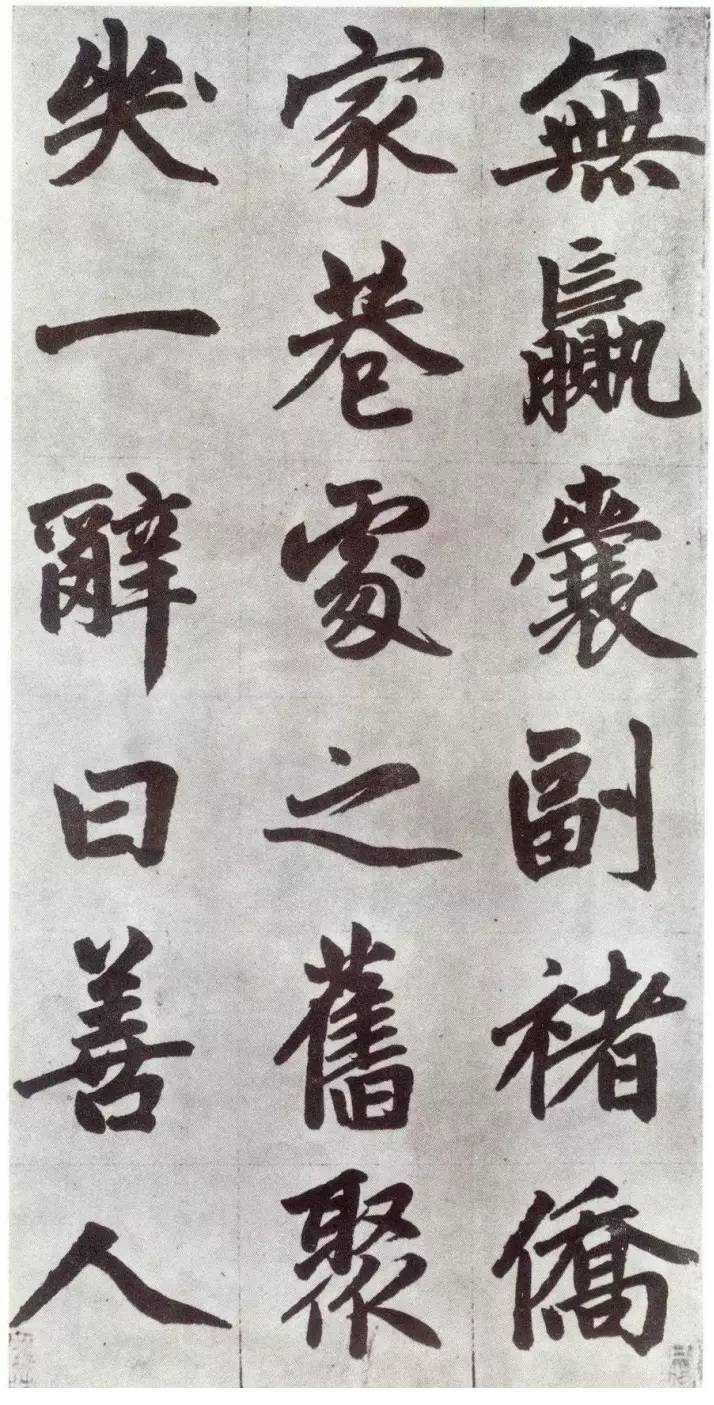 無贏囊副褚僑
家巷處之舊聚
哭一辭曰善人